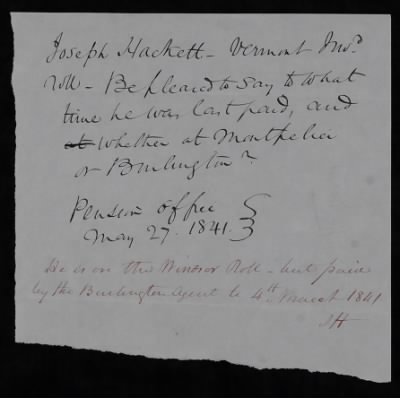 Joseph Hackett - Vermont Inv.d
Roll - Be pleased to say to what
time he was last paid, and
at whether at Montpelier
or Burlington?
Pension office }
May 27. 1841. }
He is on the Windsor Roll - but paid
by the Burlington Agent to 4th March 1841